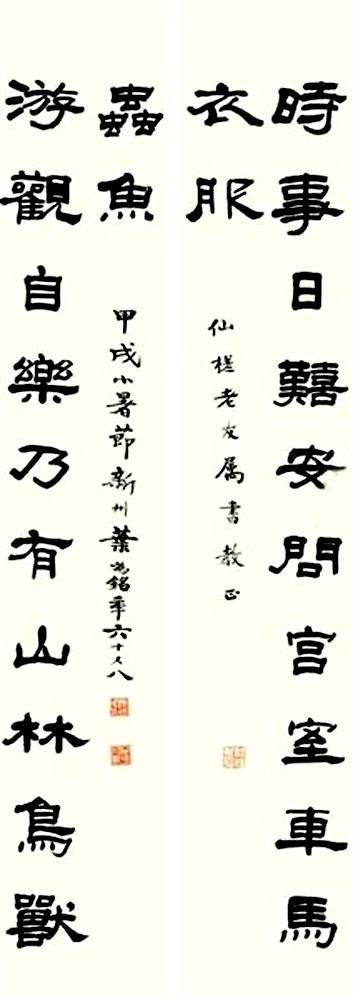 時事日囏安問宮室車馬
衣服
仙槎老友属書教正
游觀自樂乃有山林鳥獸
蟲魚
甲戌小暑節新州葉為銘年六十又八